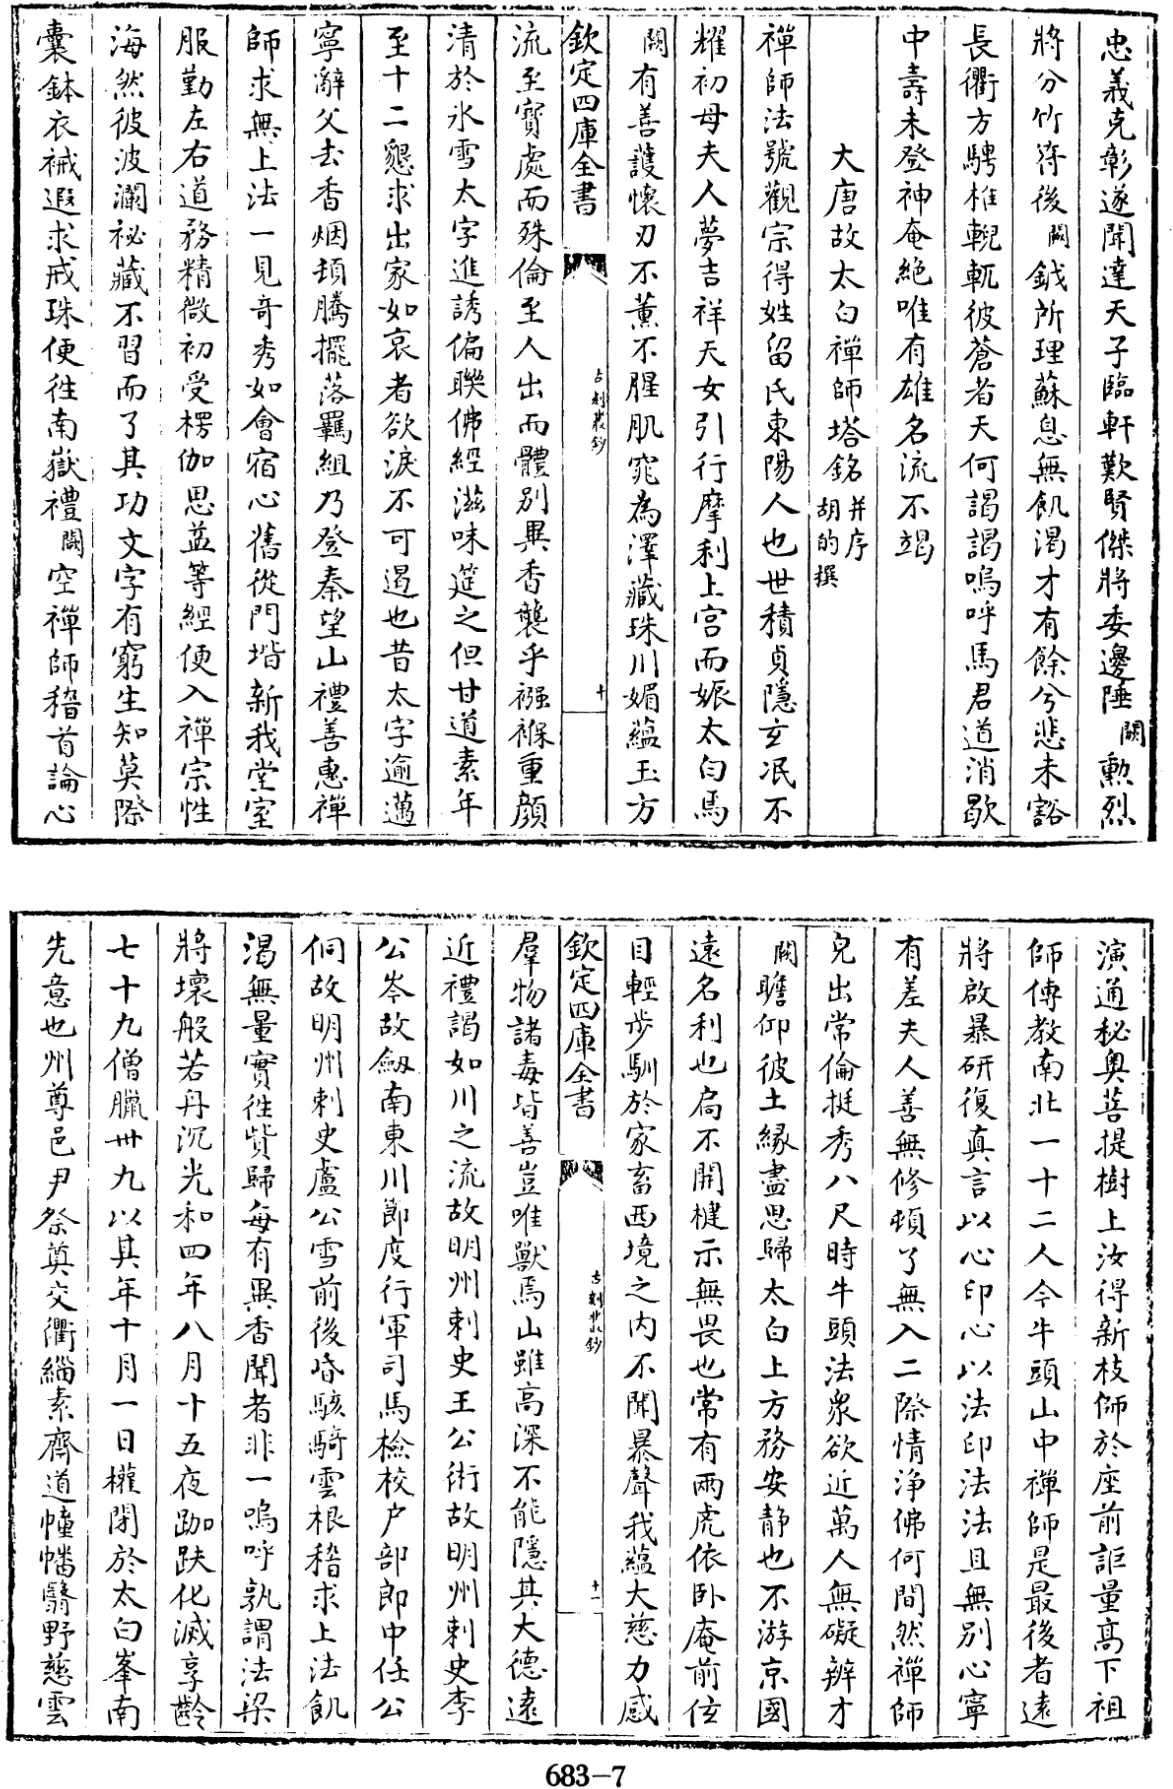 忠義克彰遂聞達天子臨軒歎賢傑將委邊陲闕勲烈
將分竹符後闕鉞所理蘇息無飢渴才有餘兮悲未豁
長衢方騁榷輗軏彼蒼者天何謁謁嗚呼馬君道消歇
中壽未登神奄絶唯有雄名流不竭
大唐故太白禪師塔銘并序胡的撰
禪師法號觀宗得姓留氏東陽人也世積貞隱玄泯不
耀初母夫人夢吉祥天女引行摩利上宫而娠太白焉
闕有善護懷刃不薰不腥肌窕為澤藏珠川媚蘊玉方
欽定四庫全書
古刻叢鈔
十
流至寳處而殊倫至人出而體别異香襲乎襁褓重顔
清於氷雪太字進誘偏聯佛經滋味筵之但甘道素年
至十二懇求出家如哀者欲淚不可遏也昔太字逾邁
寧辭父去香烟頓騰擺落羈組乃登秦望山禮善惠禪
師求無上法一見奇秀如會宿心舊從門堦新我堂室
服勤左右道務精微初受楞伽思益等經便入禪宗性
海然彼波瀾祕藏不習而了其功文字有窮生知莫際
囊鉢衣裓遐求戒珠便徃南嶽禮闕空禪師稽首論心
演通秘奥菩提樹上汝得新枝師於座前詎量高下祖
師傳教南北一十二人今牛頭山中禪師是最後者遠
將啟暴研復真言以心印心以法印法法且無别心寧
有差夫人善無修頓了無入二際情淨佛何間然禪師
皃出常倫挺秀八尺時牛頭法衆欲近萬人無礙辨才
闕瞻仰彼土緣盡思歸太白上方務安靜也不游京國
遠名利也扃不開楗示無畏也常有兩虎依卧庵前伭
目輕步馴於家畜西境之内不聞暴聲我藴大慈力感
欽定四庫全書
古刻叢鈔
十一
羣物諸毒皆善豈唯獸焉山雖高深不能隱其大德遠
近禮謁如川之流故明州刺史王公術故明州刺史李
公岑故劔南東川節度行軍司馬檢校户部郎中任公
侗故明州刺史盧公雪前後峉駭騎雲根稽求上法飢
渴無量實徃貲歸每有異香聞者非一嗚呼孰謂法梁
將壞般若舟沉光和四年八月十五夜跏趺化滅享齡
七十九僧臘卌九以其年十月一日權閉於太白峯南
先意也州尊邑尹祭奠交衢緇素齊道幢幡翳野慈雲
683-7